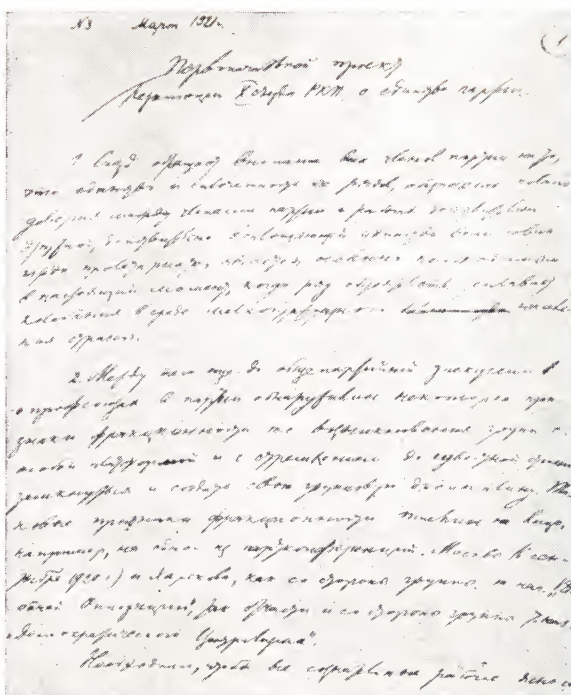 N3 Март 1921 г.
Первоначальный проект
резолюции X съезда РКП о единстве партии.
1. Съезд обращает внимание всех членов партии на то,
что единство и сплоченность ее рядов, обеспечение полного
доверия между членами партии и работы действительно
дружной, действительно воплощающей единство воли
является особенно
в настоящий момент, когда ряд обстоятельств усиливает
колебания в среде мелкобуржуазного населе-
ния страны.
2. Между тем еще до общепартийной дискуссии о
о профсоюзах в партии обнаружились некоторые при-
знаки фракционности т.е. возникновение групп с
особой платформой и с стремлением до известной степени
замкнуться и создать свою групповую дисциплину. Та-
ковые признаки фракционности имелись
например, на одной из партконференций Москвы (в
ноябре 1920 г.) и Харькова, как со стороны группы т. наз. „Раб
очей Оппозиции“, так отчасти и со стороны группы
„Демократического Централизма“.
Необходимо, чтобы все сознательные рабочие ясно